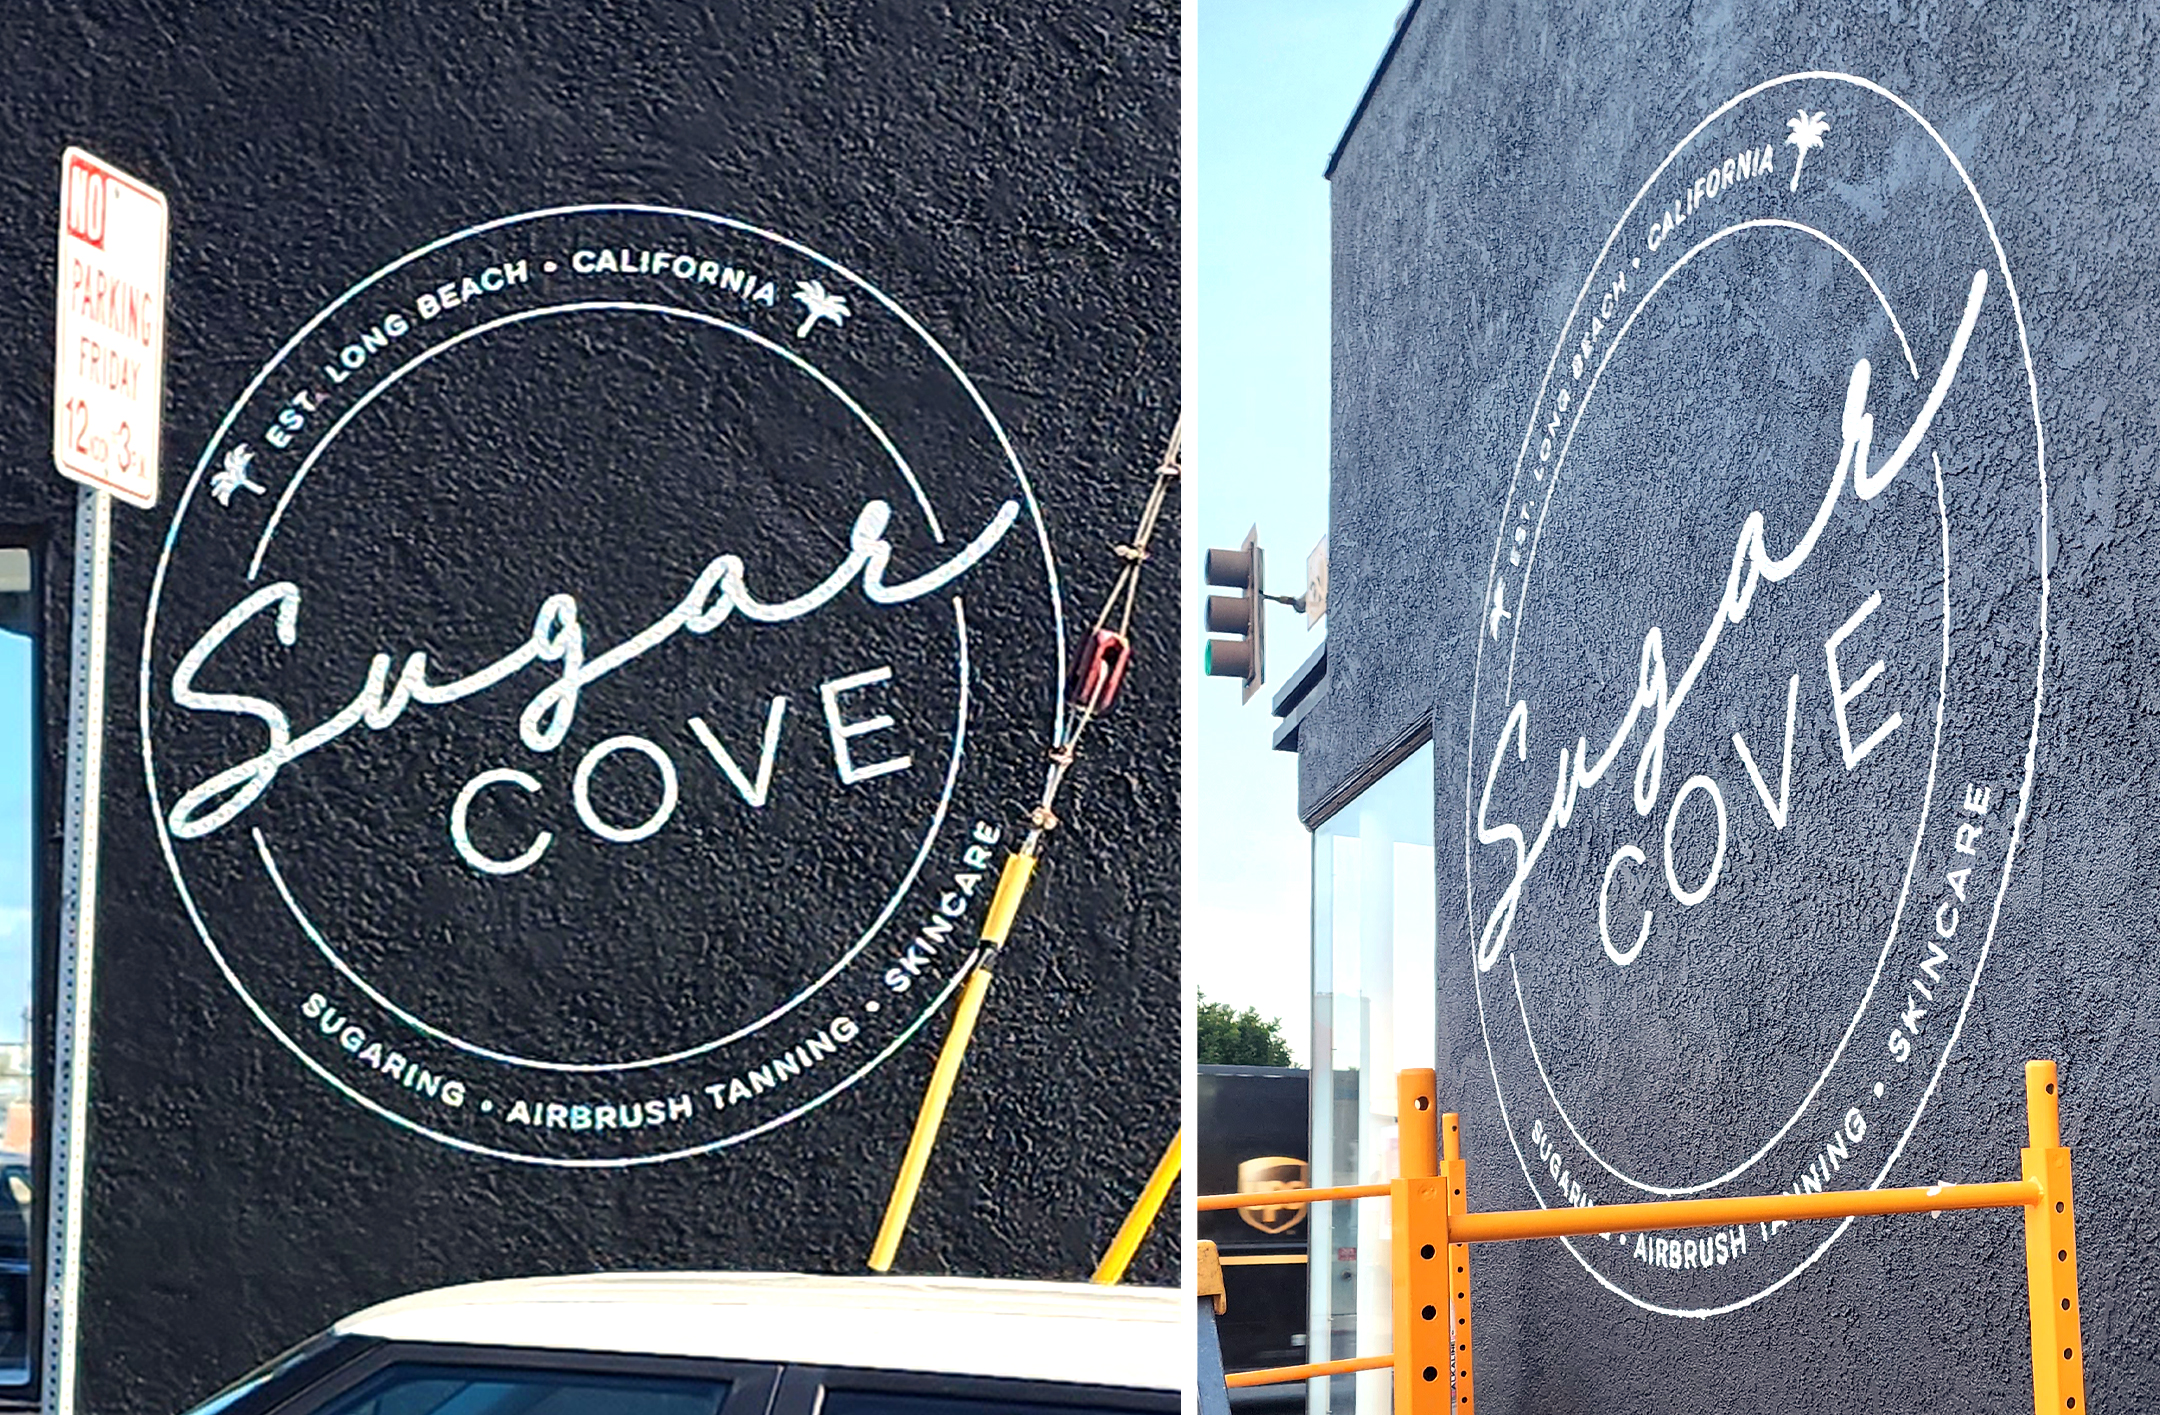 NO
PARKING
FRIDAY
EST. LONG BEACH • CALIFORNIA
Sugar
COVE
SUGARING • AIRBRUSH TANNING • SKINCARE
EST. LONG BEACH • CALIFORNIA
Sugar
COVE
SUGARING • AIRBRUSH TANNING • SKINCARE
ups